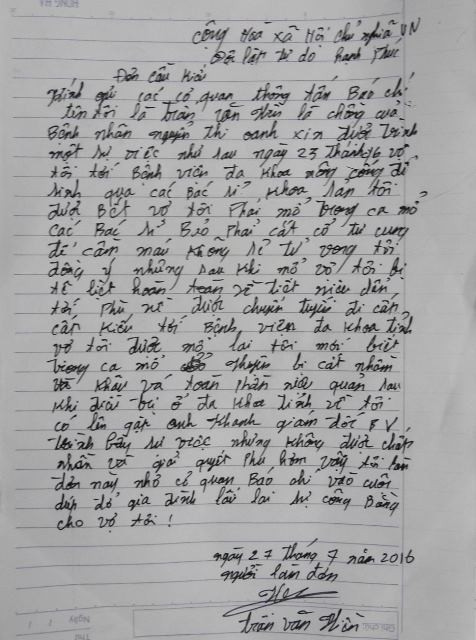 cộng Hoà xã Hội chủ nghĩa VN
Độc lập tự do hạnh phúc
Đơn cầu Kiếu
Kính gửi các cơ quan thông tấn Báo chí
tên tôi là trần văn Hiền là chồng của
Bệnh nhân nguyễn thị oanh xin được trình
một sự việc như sau ngày 23 tháng 6 vợ
tôi tới Bệnh viện đa khoa nông cống để
sinh qua các Bác sĩ khoa sản tôi
được Biết vợ tôi Phải mổ trong ca mổ
các Bác sĩ Bảo Phải cắt cổ tử cung
để cầm máu không sẽ tử vong tôi
đồng ý nhưng sau khi mổ vợ tôi bị
tê liệt hoàn toàn về tiết niệu dẫn
tới Phù nề được chuyển tuyến đi cấp
cấp Kiếu tới Bệnh viện đa khoa tỉnh
vợ tôi được mổ lại tôi mới biết
trong ca mổ bị cắt nhầm
và khâu và toàn phần niệu quản sau
khi điều trị ở đa khoa tỉnh về tôi
có lên gặp anh Khanh giám đốc BV
trình bầy sự việc nhưng không được chấp
nhận và giải quyết Phù hôm vậy tôi làm
đơn này nhờ cơ quan Báo chí vào cuộc
giúp đỡ gia đình lấy lại sự công Bằng
cho vợ tôi !
ngày 27 tháng 7 năm 2016
người làm đơn
trần văn Hiền
Ngày
Ghi chú: